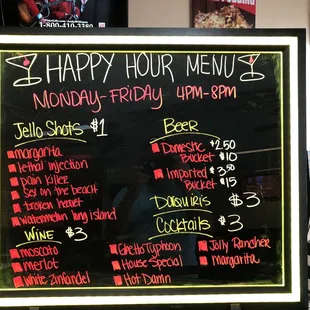 1-800-410-3380
HAPPY HOUR MENU
MONDAY-FRIDAY 4PM-8PM
Jello Shots $1
margarita
lethal injection
pain killer
Sex on the beach
broken heart
watermelon long island
WINE $3
moscato
merlot
white zinfandel
BEER
Domestic $2.50
Bucket $10
Imported $3.50
Bucket $15
DAIQUIRIS $3
Cocktails $3
Ghetto Typhoon
House Special
Hot Damn
Jolly Rancher
Margarita